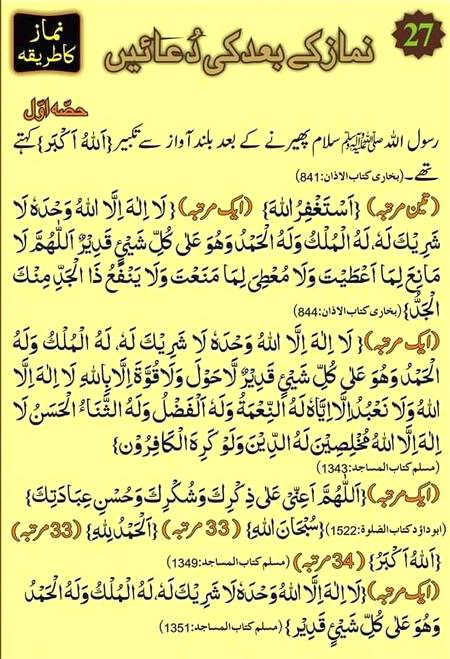 27
نماز کے بعد کی دُعائیں
نماز
کا طریقہ
حصّہ اوّل
رسول اللہ ﷺ سلام پھیرنے کے بعد بلند آواز سے تکبیر {اَللهُ اَكْبَر} کہتے
تھے۔ (بخاری کتاب الاذان:841)
(تین مرتبہ) {اَسْتَغْفِرُ اللهَ} (ایک مرتبہ) {لَا اِلٰهَ اِلَّا اللهُ وَحْدَهٗ لَا
شَرِيْكَ لَهٗ، لَهُ الْمُلْكُ وَلَهُ الْحَمْدُ وَهُوَ عَلٰى كُلِّ شَيْئٍ قَدِيْرٌ اَللّٰهُمَّ لَا
مَانِعَ لِمَا اَعْطَيْتَ وَلَا مُعْطِىَ لِمَا مَنَعْتَ وَلَا يَنْفَعُ ذَا الْجَدِّ مِنْكَ
الْجَدُّ} (بخاری کتاب الاذان:844)
(ایک مرتبہ) {لَا اِلٰهَ اِلَّا اللهُ وَحْدَهٗ لَا شَرِيْكَ لَهٗ، لَهُ الْمُلْكُ وَلَهُ
الْحَمْدُ وَهُوَ عَلٰى كُلِّ شَيْئٍ قَدِيْرٌ لَّا حَوْلَ وَلَا قُوَّةَ اِلَّا بِاللهِ لَا اِلٰهَ اِلَّا
اللهُ وَلَا نَعْبُدُ اِلَّا اِيَّاهُ لَهُ النِّعْمَةُ وَلَهُ الْفَضْلُ وَلَهُ الثَّنَاءُ الْحَسَنُ لَا
اِلٰهَ اِلَّا اللهُ مُخْلِصِيْنَ لَهُ الدِّيْنَ وَلَوْ كَرِهَ الْكَافِرُوْن}
(مسلم کتاب المساجد:1343)
(ایک مرتبہ) {اَللّٰهُمَّ اَعِنِّىْ عَلٰى ذِكْرِكَ وَشُكْرِكَ وَحُسْنِ عِبَادَتِكَ}
(ابو داؤد کتاب الصلوۃ:1522) {سُبْحَانَ اللهِ} (33 مرتبہ) {اَلْحَمْدُ لِلّٰهِ} (33 مرتبہ)
{اَللهُ اَكْبَرُ} (34 مرتبہ) (مسلم کتاب المساجد:1349)
(ایک مرتبہ) {لَا اِلٰهَ اِلَّا اللهُ وَحْدَهٗ لَا شَرِيْكَ لَهٗ، لَهُ الْمُلْكُ وَلَهُ الْحَمْدُ
وَهُوَ عَلٰى كُلِّ شَيْئٍ قَدِيْر} (مسلم کتاب المساجد:1351)